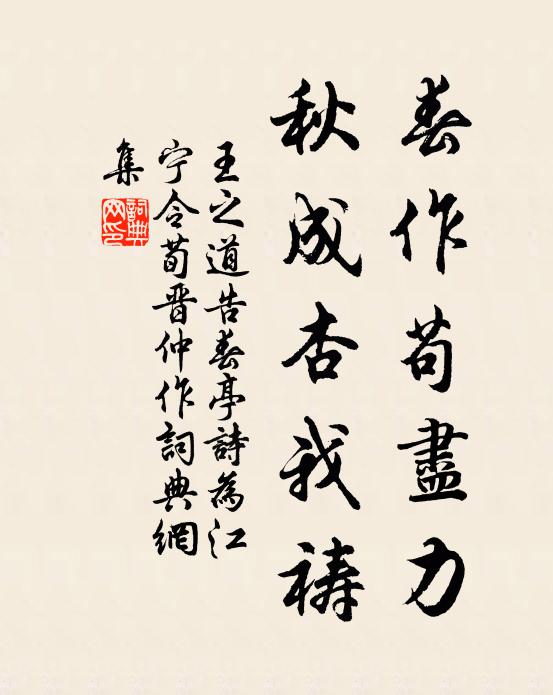 春作苟盡力
秋成杏我禱
王之道告春亭詩為江
宁令荀晋仲作詞典網
集
詞典網印